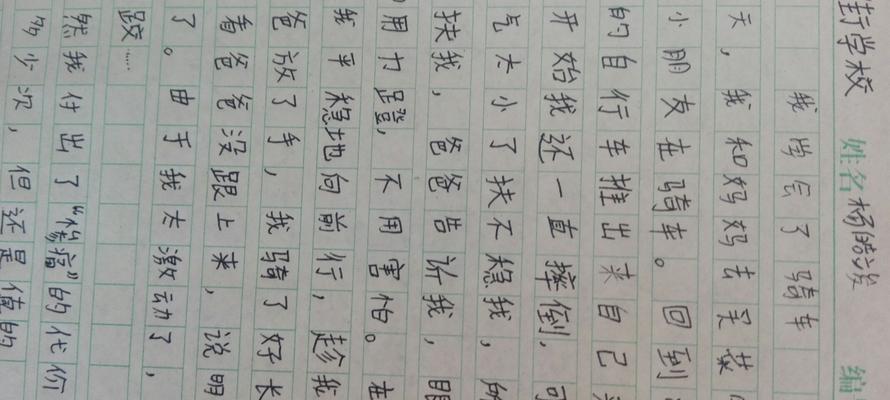 街学校 姓名杨皓淡 编
我学会了骑车
天，我和妈妈去买菜
小朋友在骑车。回到
的自行车推出来自己
开始我还一直摔倒，可
气太小了扶不稳我，所
扶我，爸爸告诉我，眼
用力蹬，不用害怕。在
我平稳地向前行，趁我
爸放了手，我骑了好长
着爸爸没跟上来，说明
了。由于我太激动了，
跤……
然我付出了“惨痛”的代价
多少次，但还是值的